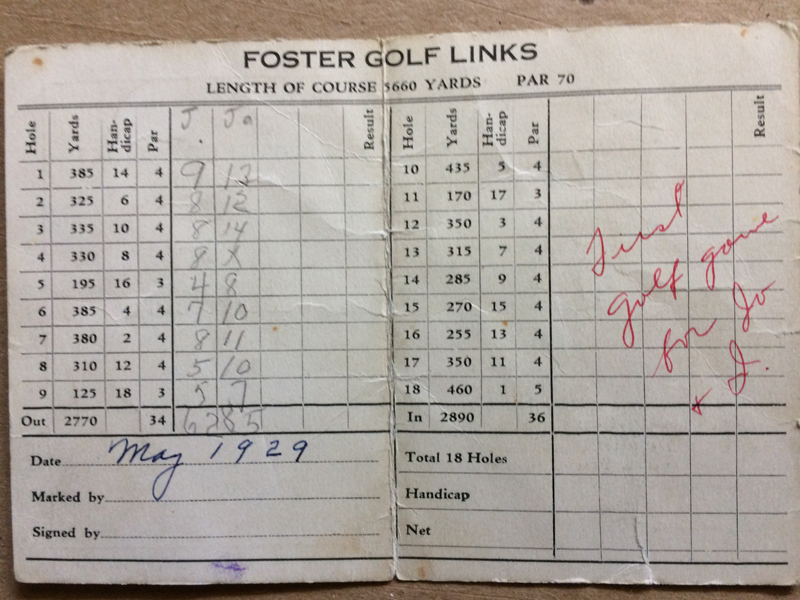 FOSTER GOLF LINKS
LENGTH OF COURSE 5660 YARDS PAR 70
Hole Yards Han-dicap Par J. Jo Result
1 385 14 4 9 13
2 325 6 4 8 12
3 335 10 4 8 14
4 330 8 4 8 X
5 195 16 3 4 8
6 385 4 4 7 10
7 380 2 4 8 11
8 310 12 4 5 10
9 125 18 3 5 7
Out 2770 34 62 85
Date May 1929
Marked by
Signed by
Hole Yards Han-dicap Par Result
10 435 5 4
11 170 17 3
12 350 3 4
13 315 7 4
14 285 9 4
15 270 15 4
16 255 13 4
17 350 11 4
18 460 1 5
In 2890 36
Total 18 Holes
Handicap
Net
First
golf game
for Jo
+ J.